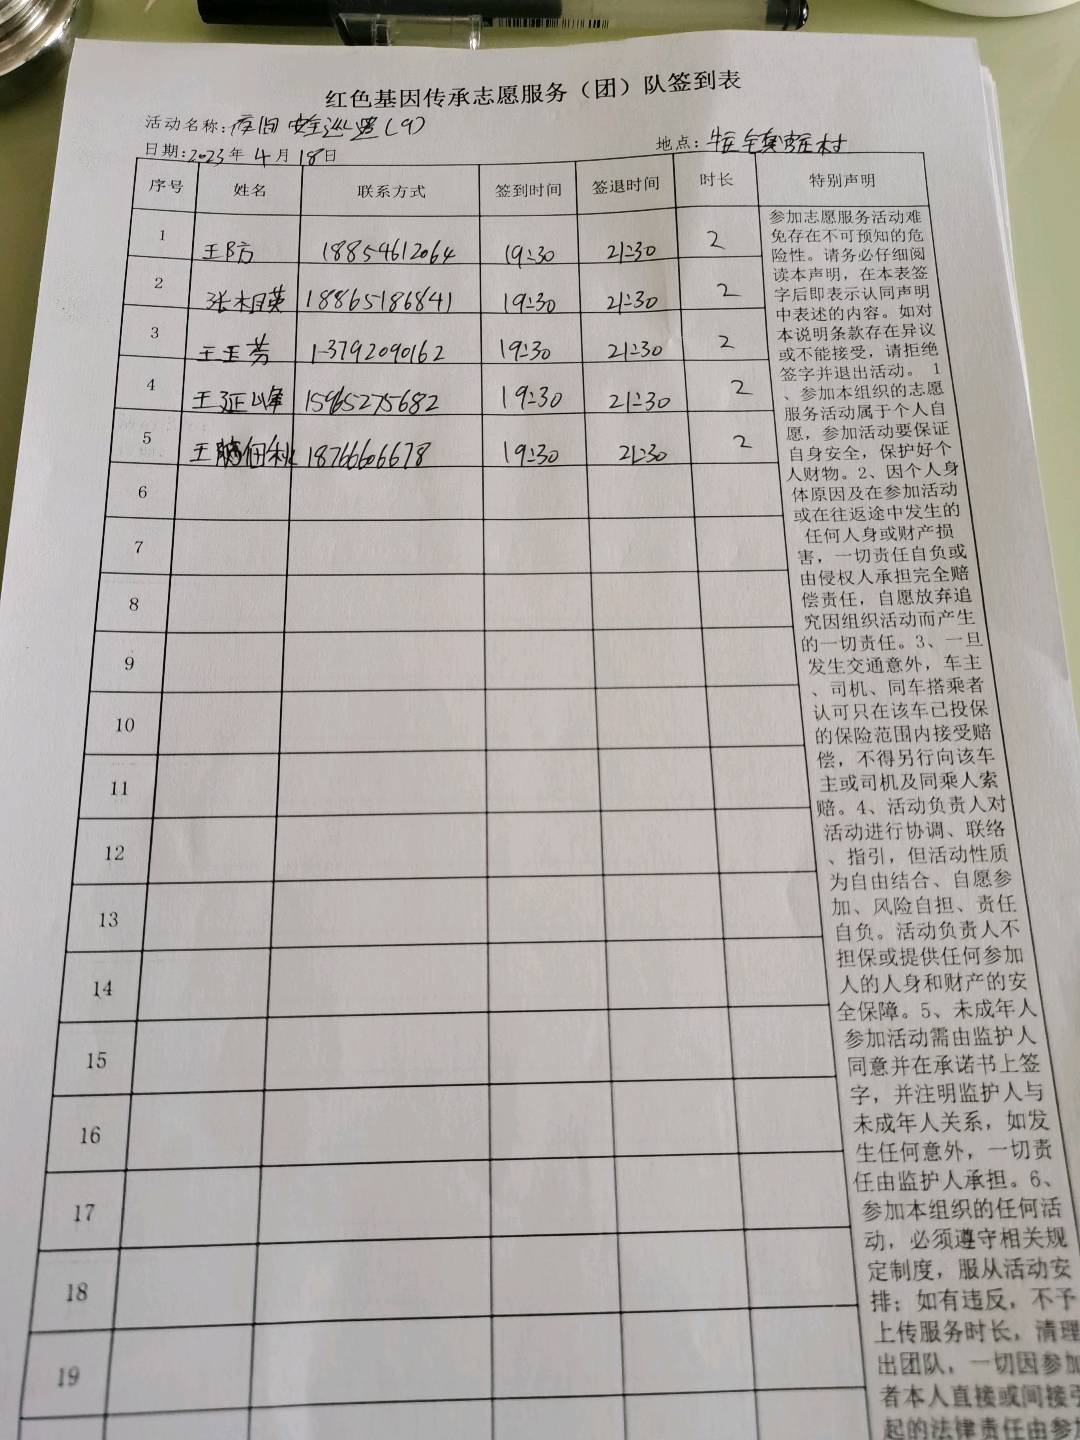 红色基因传承志愿服务（团）队签到表
活动名称：夜间安全巡逻（9）
日期：2023年4月18日 地点：
序号 姓名 联系方式 签到时间 签退时间 时长 特别声明
1 王防 18854612064 19:30 21:30 2
2 张相英 18865186841 19:30 21:30 2
3 王玉芳 13792090162 19:30 21:30 2
4 王延峰 15965275682 19:30 21:30 2
5 王 18766606678 19:30 21:30 2
6
7
8
9
10
11
12
13
14
15
16
17
18
19
参加志愿服务活动难
免存在不可预知的危
险性。请务必仔细阅
读本声明，在本表签
字后即表示认同声明
中表述的内容。如对
本说明条款存在异议
或不能接受，请拒绝
签字并退出活动。 1
、参加本组织的志愿
服务活动属于个人自
愿，参加活动要保证
自身安全，保护好个
人财物。2、因个人身
体原因及在参加活动
或在往返途中发生的
任何人身或财产损
害，一切责任自负或
由侵权人承担完全赔
偿责任，自愿放弃追
究因组织活动而产生
的一切责任。3、一旦
发生交通意外，车主
、司机、同车搭乘者
认可只在该车已投保
的保险范围内接受赔
偿，不得另行向该车
主或司机及同乘人索
赔。4、活动负责人对
活动进行协调、联络
、指引，但活动性质
为自由结合、自愿参
加、风险自担、责任
自负。活动负责人不
担保或提供任何参加
人的人身和财产的安
全保障。5、未成年人
参加活动需由监护人
同意并在承诺书上签
字，并注明监护人与
未成年人关系，如发
生任何意外，一切责
任由监护人承担。6、
参加本组织的任何活
动，必须遵守相关规
定制度，服从活动安
排；如有违反，不予
上传服务时长，清理
出团队，一切因参加
者本人直接或间接引
起的法律责任由参加